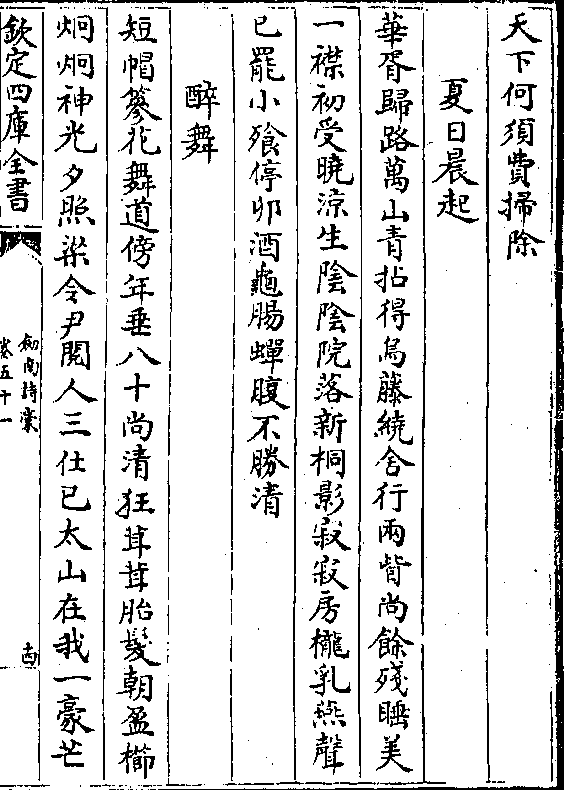 天下何須費掃除
夏日晨起
華胥歸路萬山青拈得烏藤繞舍行兩眥尚餘殘睡美
一襟初受曉涼生陰陰院落新桐影寂寂房櫳乳燕聲
已罷小飱停卯酒龜腸蟬腹不勝清
醉舞
短帽篸花舞道傍年垂八十尚清狂茸茸胎髮朝盈櫛
炯炯神光夕照梁令尹閱人三仕已太山在我一豪芒
欽定四庫全書
劍南詩稾
卷五十一
十四